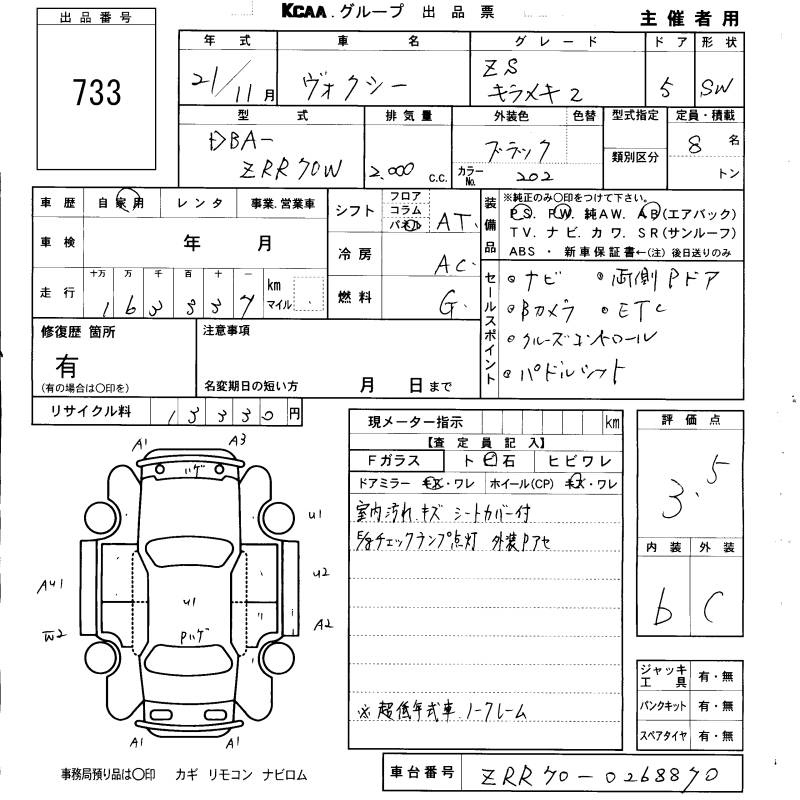 KCAA.グループ 出品票
主催者用
出品番号
733
年式 車名 グレード ドア 形状
21/11月 ヴォクシー ZS キラメキ2 5 SW
型式 排気量 外装色 色替 型式指定 定員・積載
DBA-ZRR70W 2,000 c.c. ブラック 8名
カラーNo. 202 類別区分 トン
車歴 自家用 レンタ 事業.営業車
車検 年 月
走行 十万 万 千 百 十 一 km マイル
1 6 3 3 3 7
シフト フロア コラム パネル AT.
冷房 AC.
燃料 G.
装備品
※純正のみ○印をつけて下さい。
PS. PW. 純AW. AB(エアバック)
TV. ナビ. カワ. SR(サンルーフ)
ABS ・ 新車保証書←(注) 後日送りのみ
セールスポイント
・ナビ ・両側Pドア
・Bカメラ ・ETC
・クルーズコントロール
・パドルシフト
修復歴 箇所
有
(有の場合は○印を)
注意事項
名変期日の短い方 月 日まで
リサイクル料 13330円
現メーター指示 km
【査定員記入】
Fガラス トビ石 ヒビワレ
ドアミラー キズ・ワレ ホイール(CP) キズ・ワレ
室内汚れ.キズ シートカバー付
E/gチェックランプ点灯 外装Pアセ
※超低年式車.ノークレーム
評価点
3.5
内装 外装
b C
ジャッキ工具 有・無
パンクキット 有・無
スペアタイヤ 有・無
A1 A3
ハゲ
U1
U2
AU1
U1
A2
W2
Pハゲ
A1 A1
事務局預り品は○印 カギ リモコン ナビロム
車台番号 ZRR70-0268870